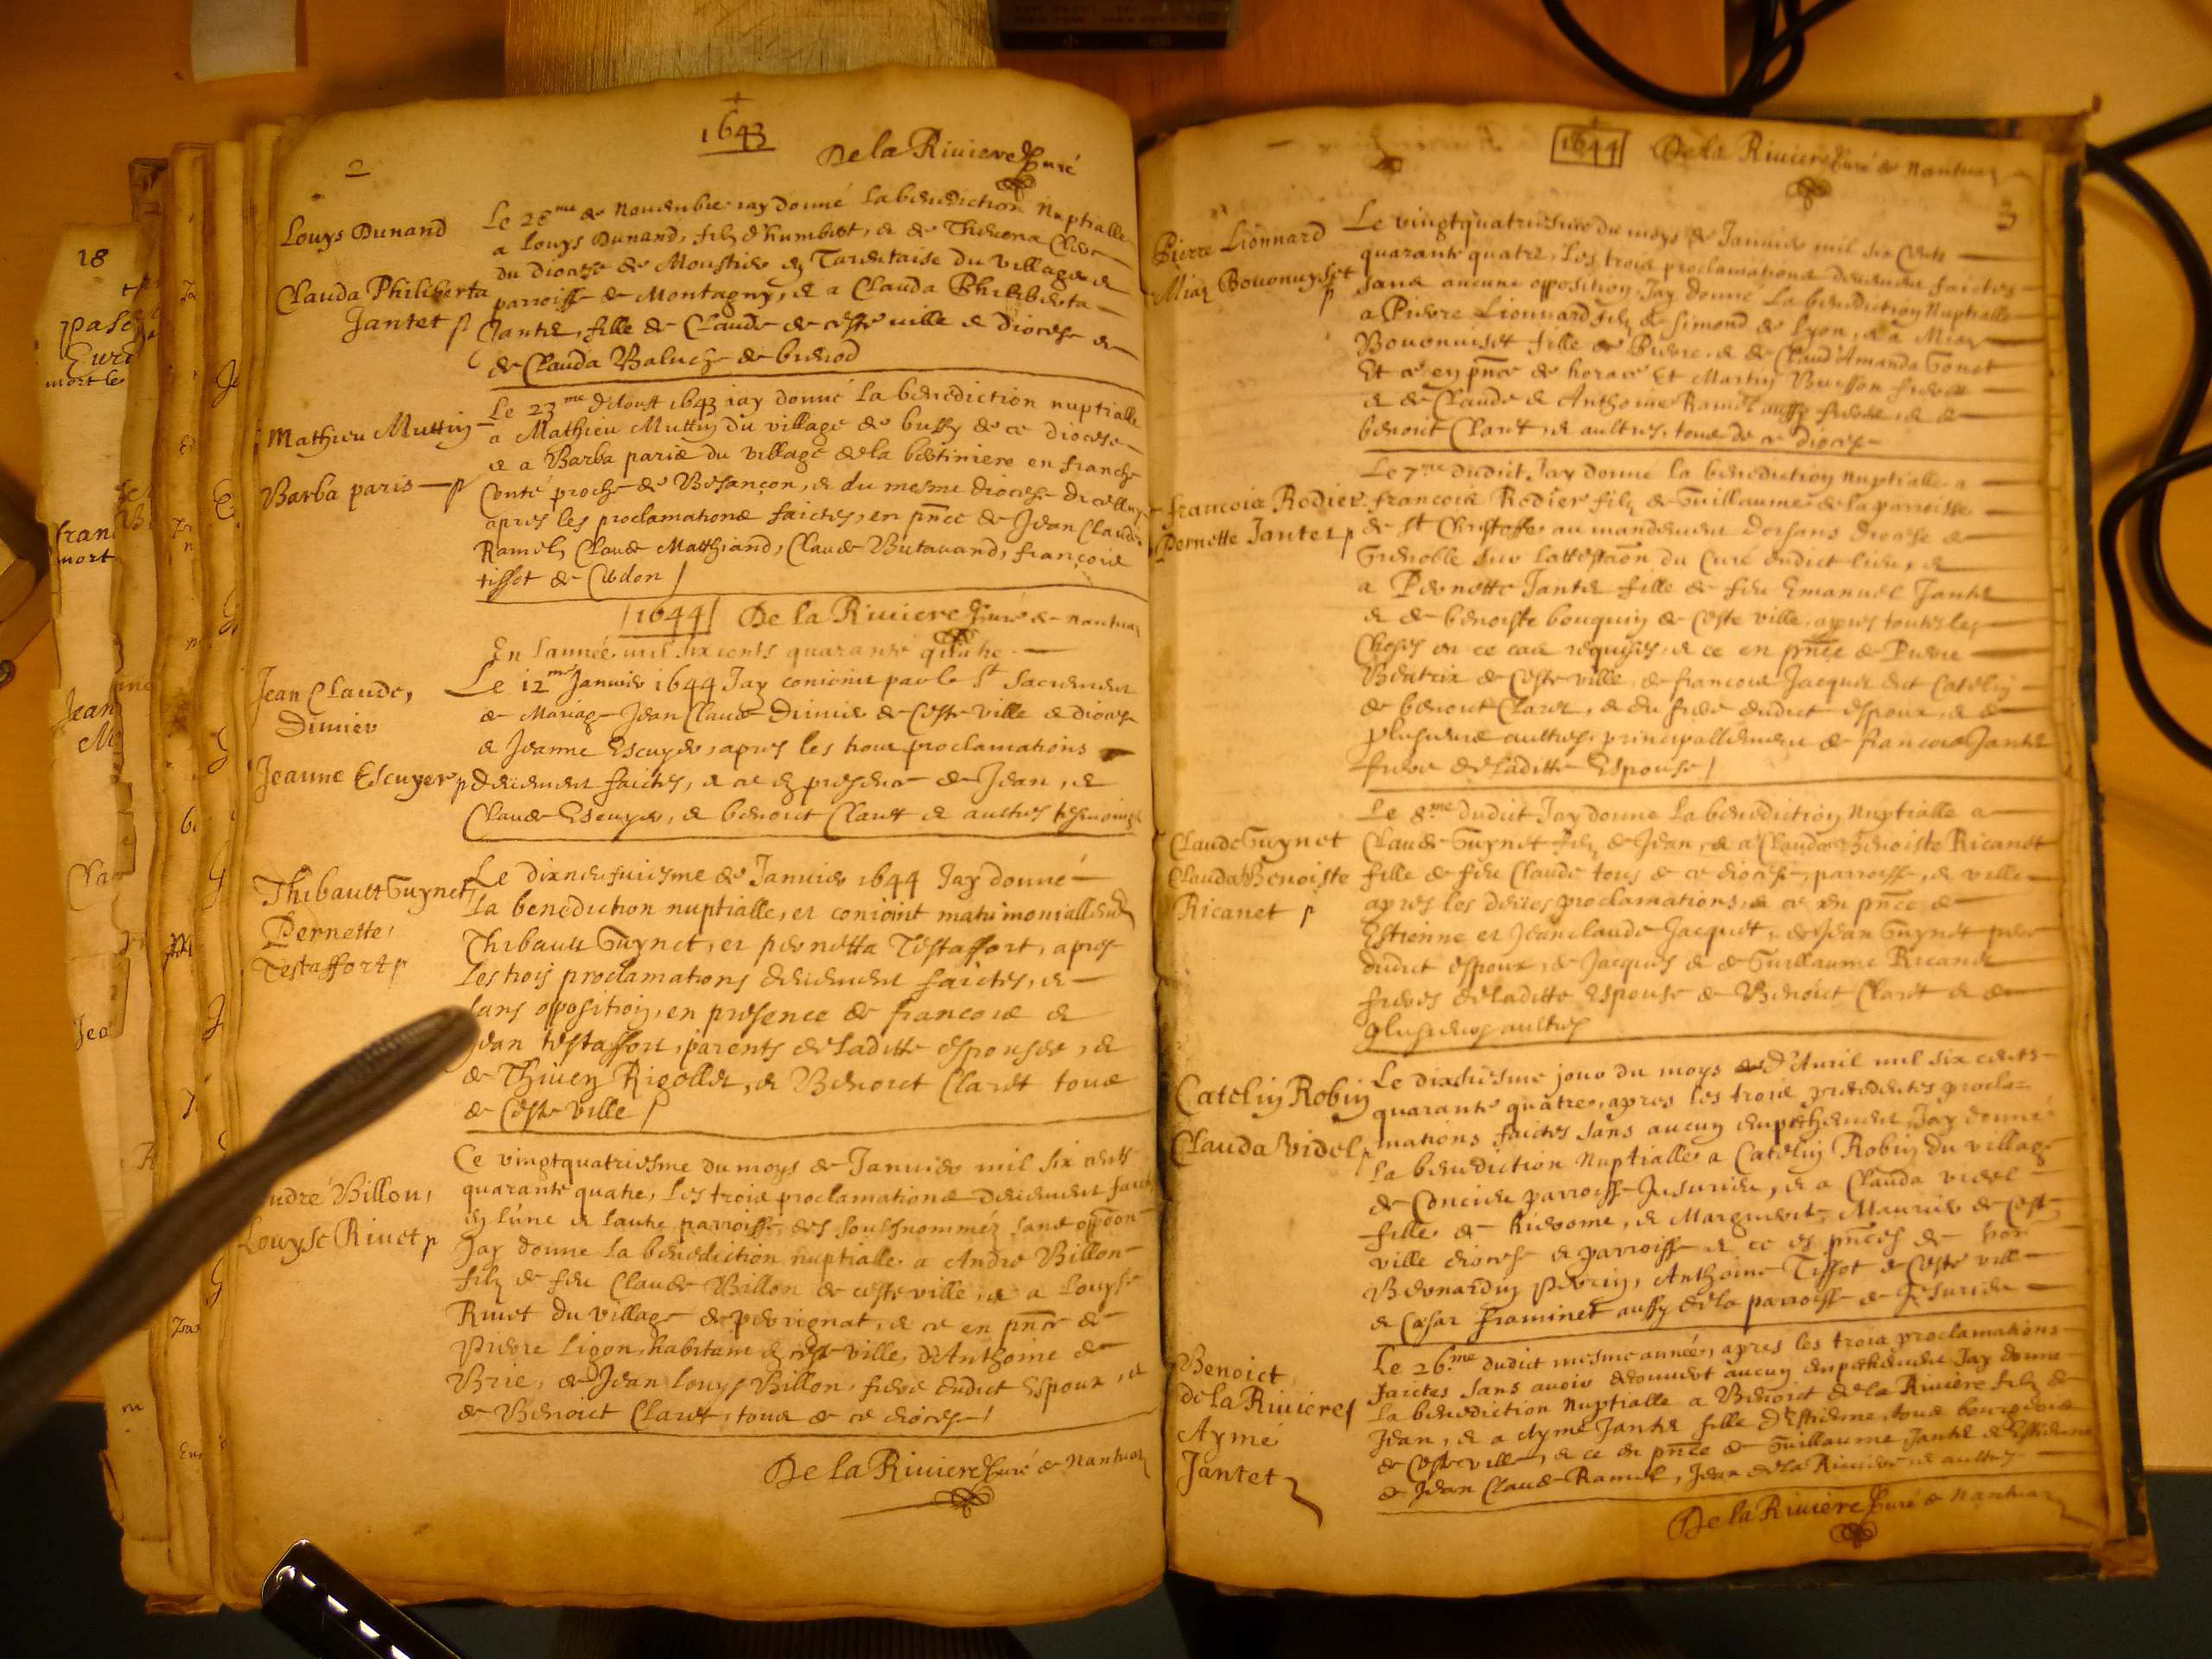 2
1643
De la Riviere Curé
Louys Dunand
Clauda Philiberta
Jantet p
Le 28me de Novembre iay donné la benediction Nuptialle
a Louys Dunand, filz d'humbert, & de Thevena
du diocese de Moustier en Tarentaise du village &
parroisse de Montagny, & a Clauda Philiberta
Jantet, fille de Claude de ceste ville & diocese &
de Clauda Baluche de
Mathieu Muttin
Barba paris p
Le 23me d'Aoust 1643 iay donné la benediction nuptialle
a Mathieu Muttin du village de bussy de ce diocese
& a Barba paris du village de la bertiniere en franche
Conté proche de Besançon, & du mesme diocese
apres les proclamations faictes, en pnce de Jean Claude
Ramel, Claude Matthiand, Claude Butavand, françois
tissot de Cerdon
1644 De la Riviere Curé de Nantua
En l'année mil six cents quarante quatre
Jean Claude,
Dimier
Jeanne Escuyer p
Le 12me Janvier 1644 Jay conioint par le St Sacrement
de Mariage Jean Claude Dimier de Ceste ville & diocese
& Jeanne Escuyer, apres les trois proclamations
deuement faictes, & ce en presence de Jean, &
Claude Escuyer, & benoict Claret & aultres tesmoings
Thibault Guynet
Pernette
Testaffort p
Le dixneufuiesme de Janvier 1644 Jay donné
la benediction nuptialle, et conioint matrimoniallement
Thibault Guynet, et pernetta Testaffort, apres
les trois proclamations deuement faictes, &
sans opposition, en presence de francois &
Jean testaffort, parents de laditte espousée, &
de Thiven Rigollet, & Benoict Claret tous
de Ceste ville
André Billon,
Louyse Rivet p
Ce vingtquatriesme du moys de Janvier mil six cents
quarante quatre, les trois proclamations deuement faictes
en l'une & l'autre parroisse, des soubsnommez sans oppoon
Jay donné la benediction nuptialle a André Billon
filz de feu Claude Billon de ceste ville, & a Louyse
Rivet du village de pérignat, & ce en pnce de
Pierre Ligon, habitant en ceste ville, d'Anthoine de
Brie, de Jean Louys Billon, frere dudict Espoux, &
de Benoict Claret, tous de ce diocese
De la Riviere Curé de Nantua
1644
De la Riviere Curé de Nantua
3
Pierre Lionnard
Mia Bovonuyset
p
Le vingtquatriesme du moys de Janvier mil six Cents
quarante quatre, les trois proclamations deuement faictes
sans aucune opposition, Jay donné la benediction Nuptialle
a Pierre Lionnard filz de Simond de Lyon, & a Mia
Bovonuiset fille de Pierre, & de Claud'Amanda Gonet
Et ce en pnce de horace Et Martin Buisson freres
& de Claude & Anthoine Ramel aussy freres, & de
benoict Claret, & aultres, tous de ce diocese
francois Rodier
Pernette Jantet p
Le 7me dudict Jay donné la benediction nuptialle a
francois Rodier filz de Guillaume de la parroisse
de St Christoffe au mandement doysans diocese de
Grenoble sur l'attestaon du Curé dudict lieu, &
a Pernette Jantet fille de feu Emanuel Jantet
& de benoiste bouquin de Ceste ville, apres toutes les
choses en ce cas requises, & ce en pnce de Pierre
Beatrix de Ceste ville, de francois Jacquet dict Catelin
de benoict Claret, & du frere dudict espoux, & de
plusieurs aultres, principallement de francois Jantet
frere de laditte Espouse
Claude Guynet
Clauda Benoiste
Ricanet p
Le 8me dudict Jay donné la benediction Nuptialle a
Claude Guynet filz de Jean, & a Clauda Benoiste Ricanet
fille de feu Claude tous de ce diocese, parroisse, & ville
apres les deües proclamations, & ce en pnce de
Estienne et Jean claude Jacquet, de Jean Guynet pere
dudict espoux, de Jacques & de Guillaume Ricanet
freres de laditte Espouse & Benoict Claret & de
plusieurs aultres
Catelin Robin
Clauda Videl p
Le dixhiesme jour du moys d'Avril mil six cents
quarante quatre, apres les trois precedentes procla=
mations faictes sans aucun empechement, Jay donné
la benediction Nuptialle a Catelin Robin du village
de Concieu parroisse Jusurieu, & a Clauda videl
fille de hierome, & Marguerite Maurier de Ceste
ville diocese & parroisse & ce es pnces de
Bernardin perrin, Anthoine Tissot de Ceste ville
& Cesar framinet aussy de la parroisse de Jesurieu
Benoict
de la Riviere
Ayme
Jantet
Le 26me dudict mesme année, apres les trois proclamations
faictes sans avoir decouvert aucun empechement Jay donné
la benediction nuptialle a Benoict de la Riviere filz de
Jean, & a Ayme Jantet fille d'Estienne, tous bourgeois
de Ceste ville, & ce en pnce de Guillaume Jantet d'Estienne
de Jean Claude Ramel, Jean de la Riviere & aultres
De la Riviere Curé de Nantua